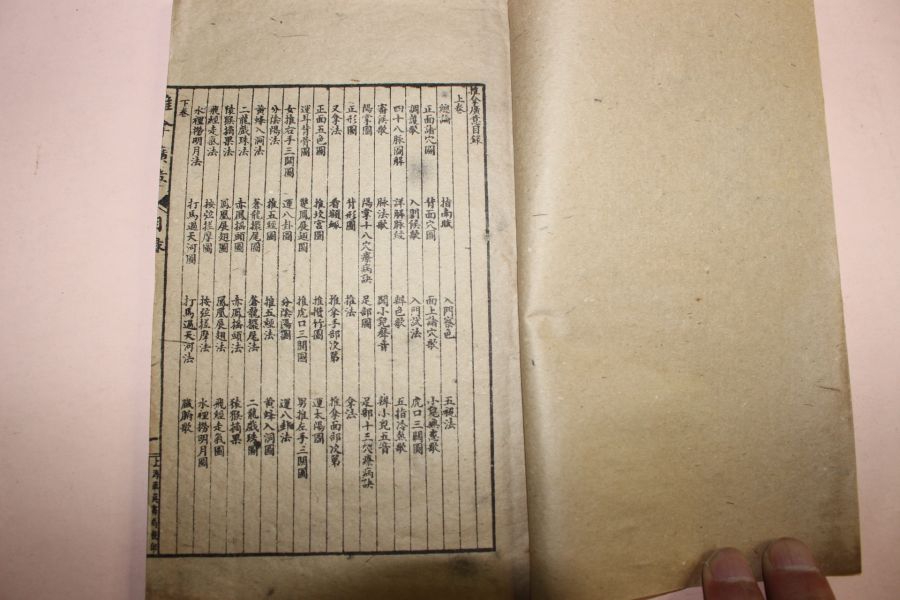 推拿廣意目錄
上卷
總論 指南賦 入門察色 五視法
正面諸穴圖 背面穴圖 面上諸穴歌 小兒無患歌
調護歌 入門試法 虎口三關圖
四十八脈圖解 詳解脈紋 辨色歌 五指冷熱歌
審候歌 脈法歌 聞小兒聲音 辨小兒五音
陽掌圖 陽掌十八穴療病訣 足部圖 足部十三穴療病訣
正形圖 背形圖 推法 拿法
又拿法 看額脈 推拿手部次第 推拿面部次第
正面五色圖 推坎宮圖 推攢竹圖 運太陽圖
運耳背骨圖 雙鳳展翅圖 推虎口三關圖 男推左手三關圖
女推右手三關圖 運八卦圖 分陰陽圖 運八卦法
分陰陽法 推五經圖 推五經法 黃蜂入洞圖
黃蜂入洞法 蒼龍擺尾圖 蒼龍擺尾法 二龍戲珠圖
二龍戲珠法 赤鳳搖頭圖 赤鳳搖頭法 猿猴摘果
猿猴摘果法 鳳凰展翅圖 鳳凰展翅法 飛經走氣圖
飛經走氣法 按弦搓摩圖 按弦搓摩法 水裡撈明月圖
水裡撈明月法 打馬過天河圖 打馬過天河法 臟腑歌
下卷
推拿廣意 目錄